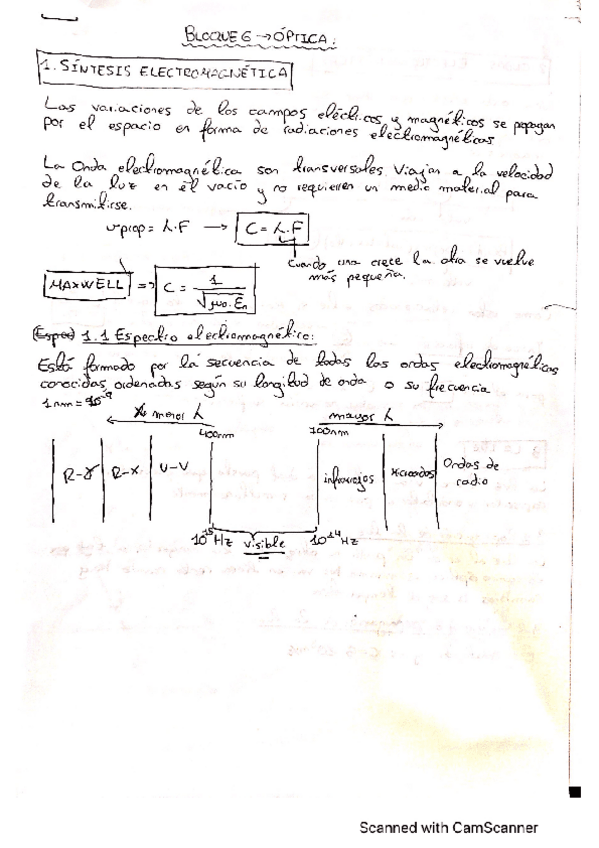 BLOQUE 6 → ÓPTICA:
1. SÍNTESIS ELECTROMAGNÉTICA
Las variaciones de los campos eléctricos y magnéticos se propagan
por el espacio en forma de radiaciones electromagnéticas
La Onda electromagnética son transversales. Viajan a la velocidad
de la luz en el vacío y no requieren un medio material para
transmitirse.
v prop = λ·F → C = λ·F
Cuando una crece la otra se vuelve
más pequeña.
MAXWELL => C = 1/√μ₀·ε₀
1.1 Espectro electromagnético:
Está formado por la secuencia de todas las ondas electromagnéticas
conocidas, ordenadas según su longitud de onda o su frecuencia
1nm = 10⁻⁹
menor λ mayor λ
400nm 700nm
R-γ R-X U-V infrarrojos Microondas Ondas de
radio
10¹⁵ Hz visible 10¹⁴ Hz
Scanned with CamScanner